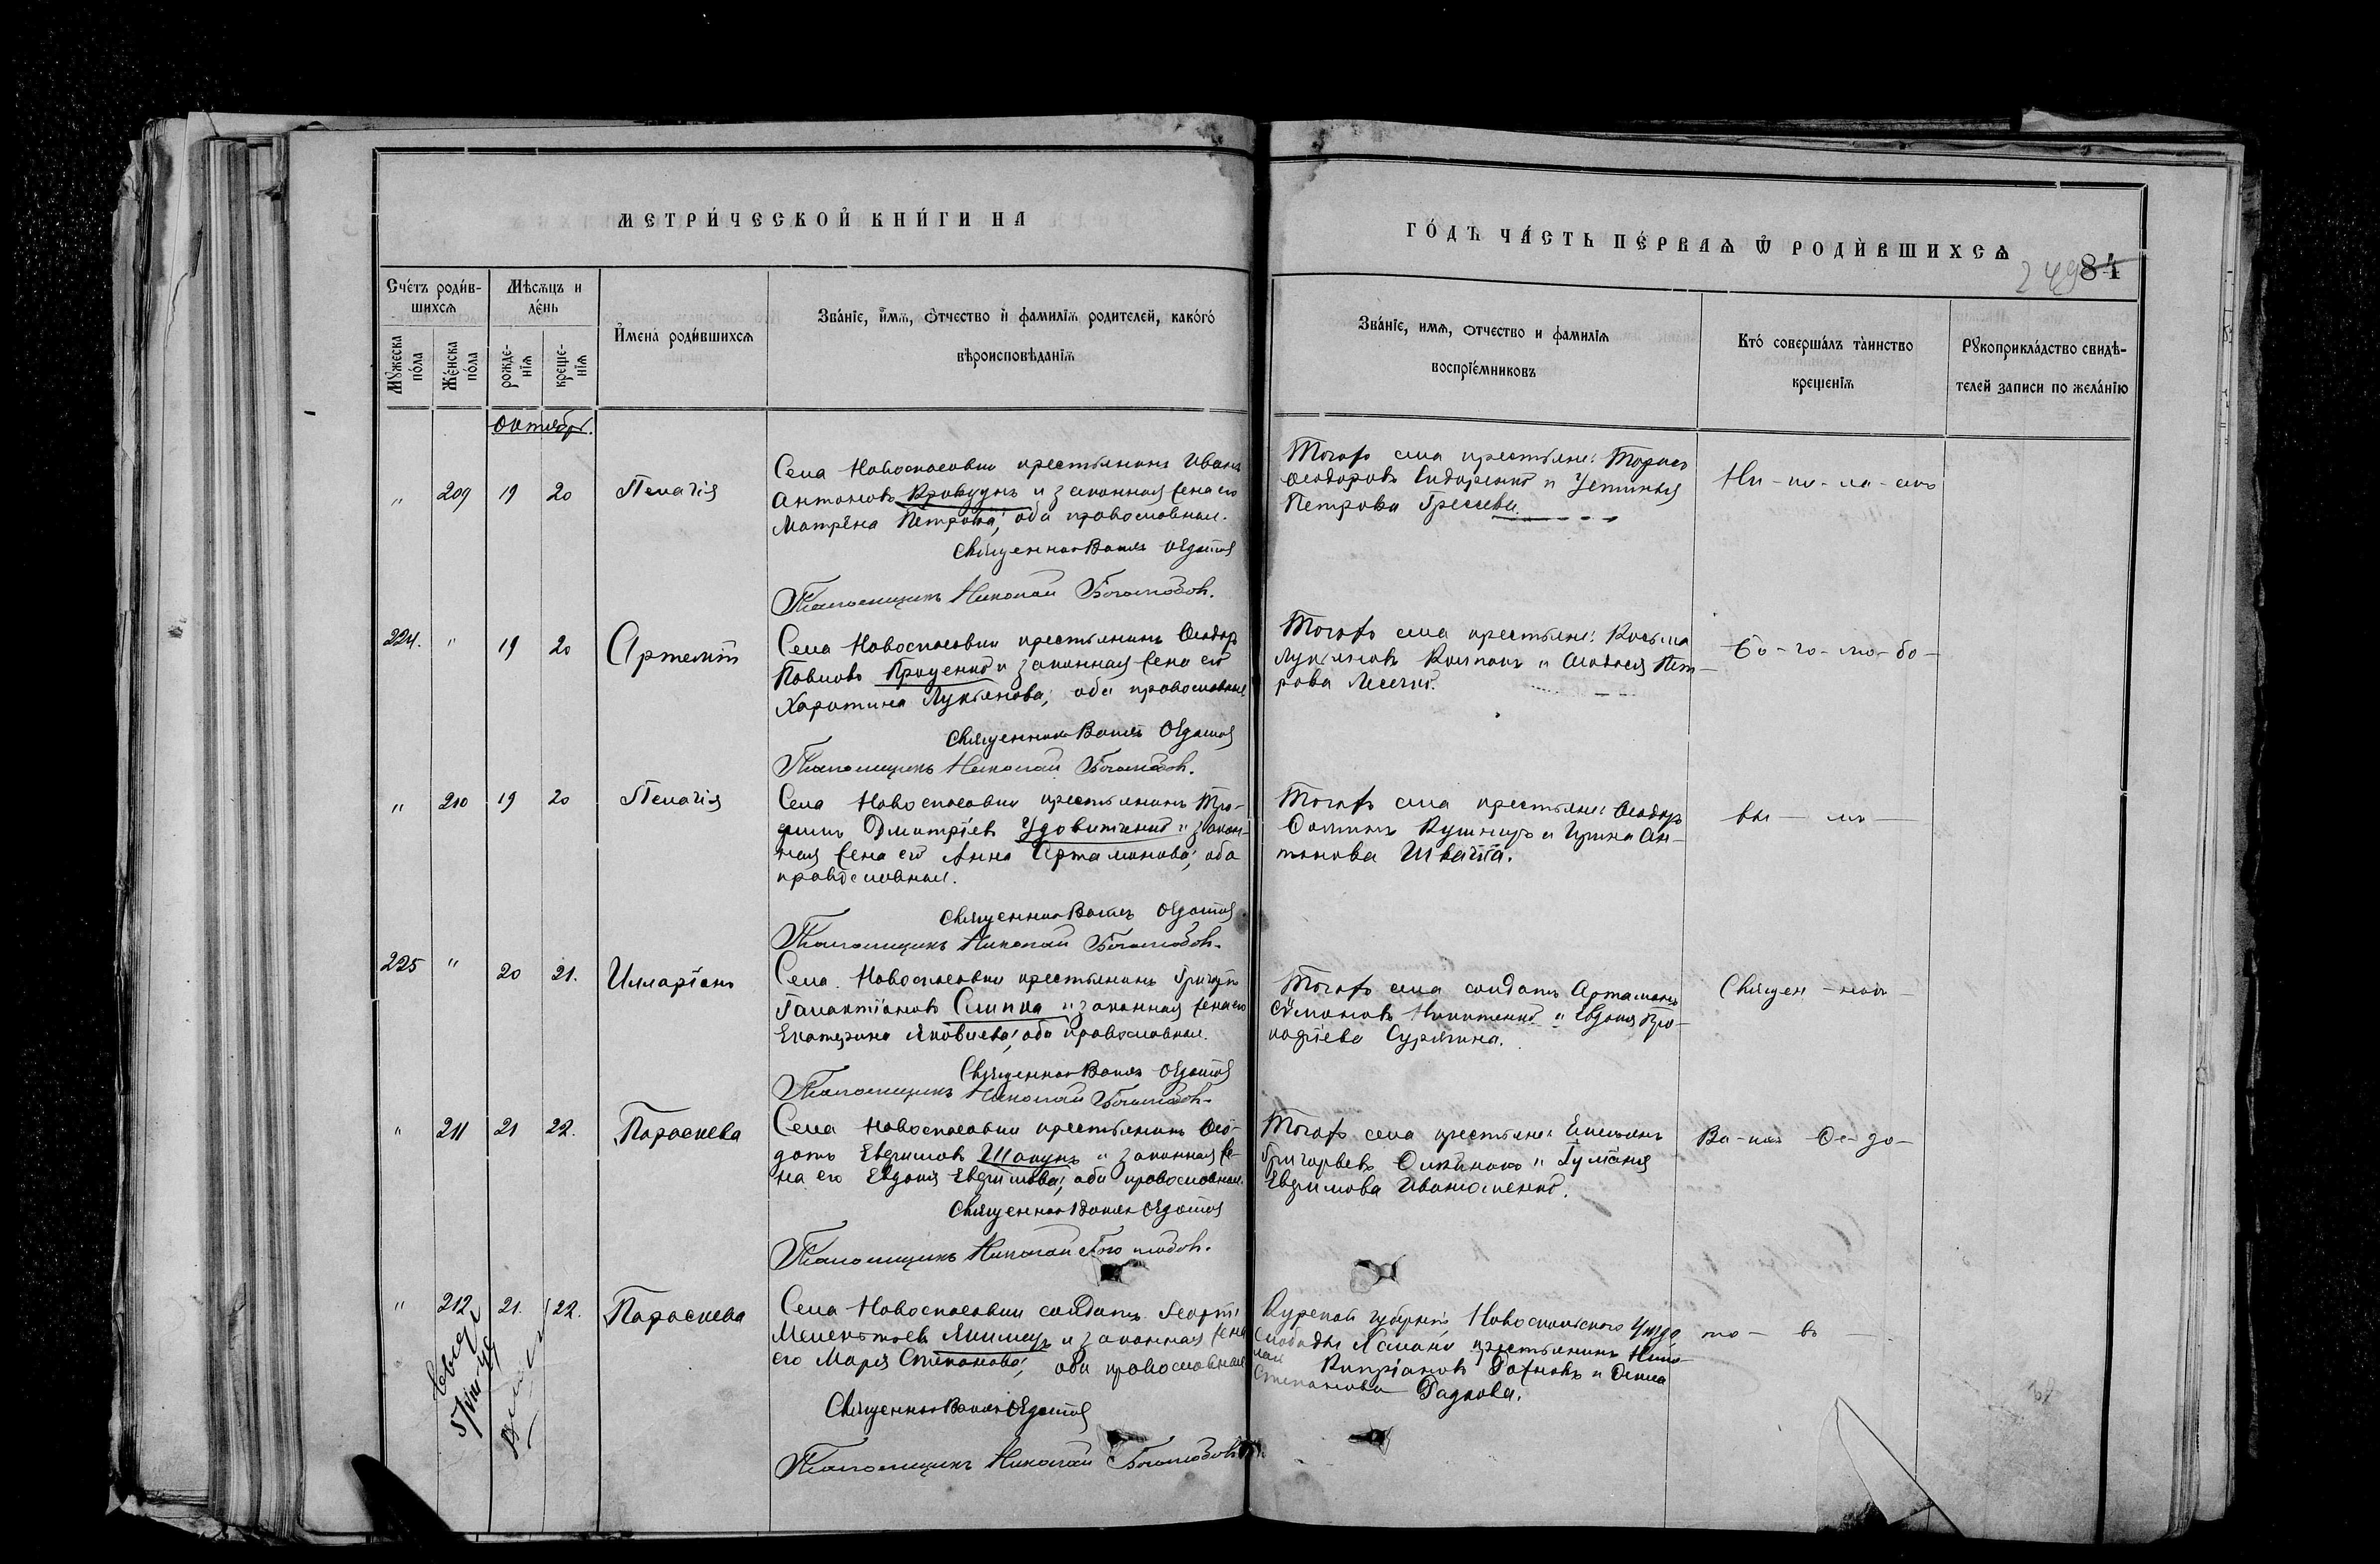 МЕТРИ́ЧЕСКОЙ КНИ́ГИ НА
ГО́ДЪ ЧА́СТЬ ПЕ́РВАѦ Ѿ РОДИ́ВШИХСѦ
249 84
Сче́тъ роди́в-
шихсѧ
Мѣсѧцъ и
де́нь
Мꙋ́жеска
по́ла
Же́нска
по́ла
рожде-
нїѧ
креще-
нїѧ
И҆мена̀ роди́вшихсѧ
Зва́нїе, и҆́мѧ, ѻ҆́тчество и҆ фамилїѧ родителей, како́гѡ
вѣроисповѣ́данїѧ
Зва́нїе, имѧ, ѻтчество и фамилїѧ
воспрїе́мниковъ
Кто́ соверша́лъ та́инство
креще́нїѧ
Рꙋкоприкла́дство свидѣ-
телей записи по жела́нїю
Октябрь.
" 209 19 20 Пелагія
Села Новоспасовки крестьянинъ Иванъ
Антоновъ и законная жена его
Матрёна Петрова; оба православные.
Священникъ Федотовъ
Псаломщикъ Николай Боголюбовъ.
Тогожъ села крестьяне:
Феодоровъ Сидоренко и Устинья
Петрова
Ни-ко-ла-емъ
224. " 19 20 Артемій
Села Новоспасовки крестьянинъ Феодоръ
Павловъ Проценко и законная жена его
Харитина Лукьянова; оба православные
Священникъ Федотовъ
Псаломщикъ Николай Боголюбовъ.
Тогожъ села крестьяне: Косьма
Лукьяновъ Колпакъ и Феодосія Пет-
рова
Бо-го-лю-бо-
" 210 19 20 Пелагія
Села Новоспасовки крестьянинъ Тро-
фимъ Дмитріевъ Удовиченко и закон-
ная жена его Анна Артамонова; оба
православные.
Священникъ Федотовъ
Псаломщикъ Николай Боголюбовъ.
Тогожъ села крестьяне: Феодоръ
Кушниръ и Ирина Ан-
тонова Швачка.
вы- мъ -
225 " 20 21. Илларіонъ
Села Новоспасовки крестьянинъ Григорій
Галактіоновъ Слипка и законная жена его
Екатерина Яковлева; оба православные.
Священникъ Федотовъ
Псаломщикъ Николай Боголюбовъ.
Тогожъ села солдатъ Артамонъ
Симоновъ Никитенко и Евдокія Про-
кофіева Сурягина.
Священ-ник-
" 211 21 22. Параскева
Села Новоспасовки крестьянинъ Фео-
дотъ Евфимовъ Шакунъ и законная же-
на его Евдокія Евфимова; оба православные.
Священникъ Федотовъ
Псаломщикъ Николай Боголюбовъ.
Тогожъ села крестьяне: Емельянъ
Григорьевъ и Іуліанія
Евфимова Иваносненко.
Фе-до-
" 212 21. 22. Параскева
Села Новоспасовки солдатъ Георгій
Мелентьевъ Якимецъ и законная жена
его Марія Степанова; оба православные
Священникъ Федотовъ
Псаломщикъ Николай Боголюбовъ
Курской губерніи Новооскольскаго уѣзда
слободы крестьянинъ Нико-
лай Кипріановъ и
Степанова
то- во-